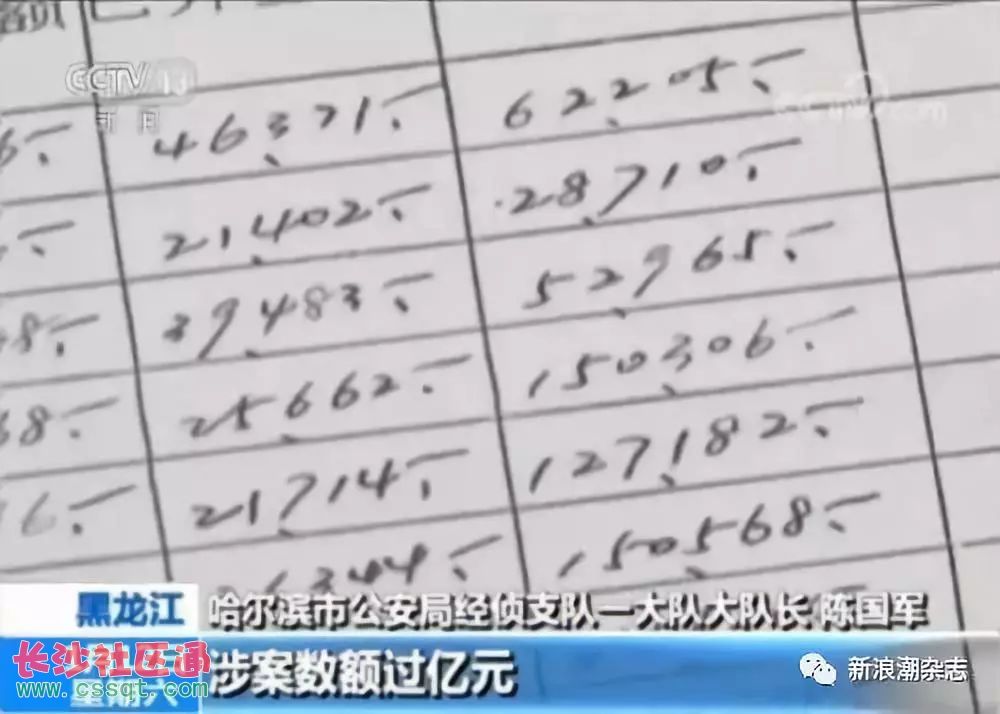 CCTV 13
新闻
46321.— 62205.—
21402.— 28710.—
8.— 39483.— 52965.—
8.— 25662.— 150306.—
6.— 21714.— 127182.—
344.— 150568.—
黑龙江 哈尔滨市公安局经侦支队一大队大队长 陈国军
涉案数额过亿元
长沙社区通
www.cssqt.com
星期六
新浪潮杂志